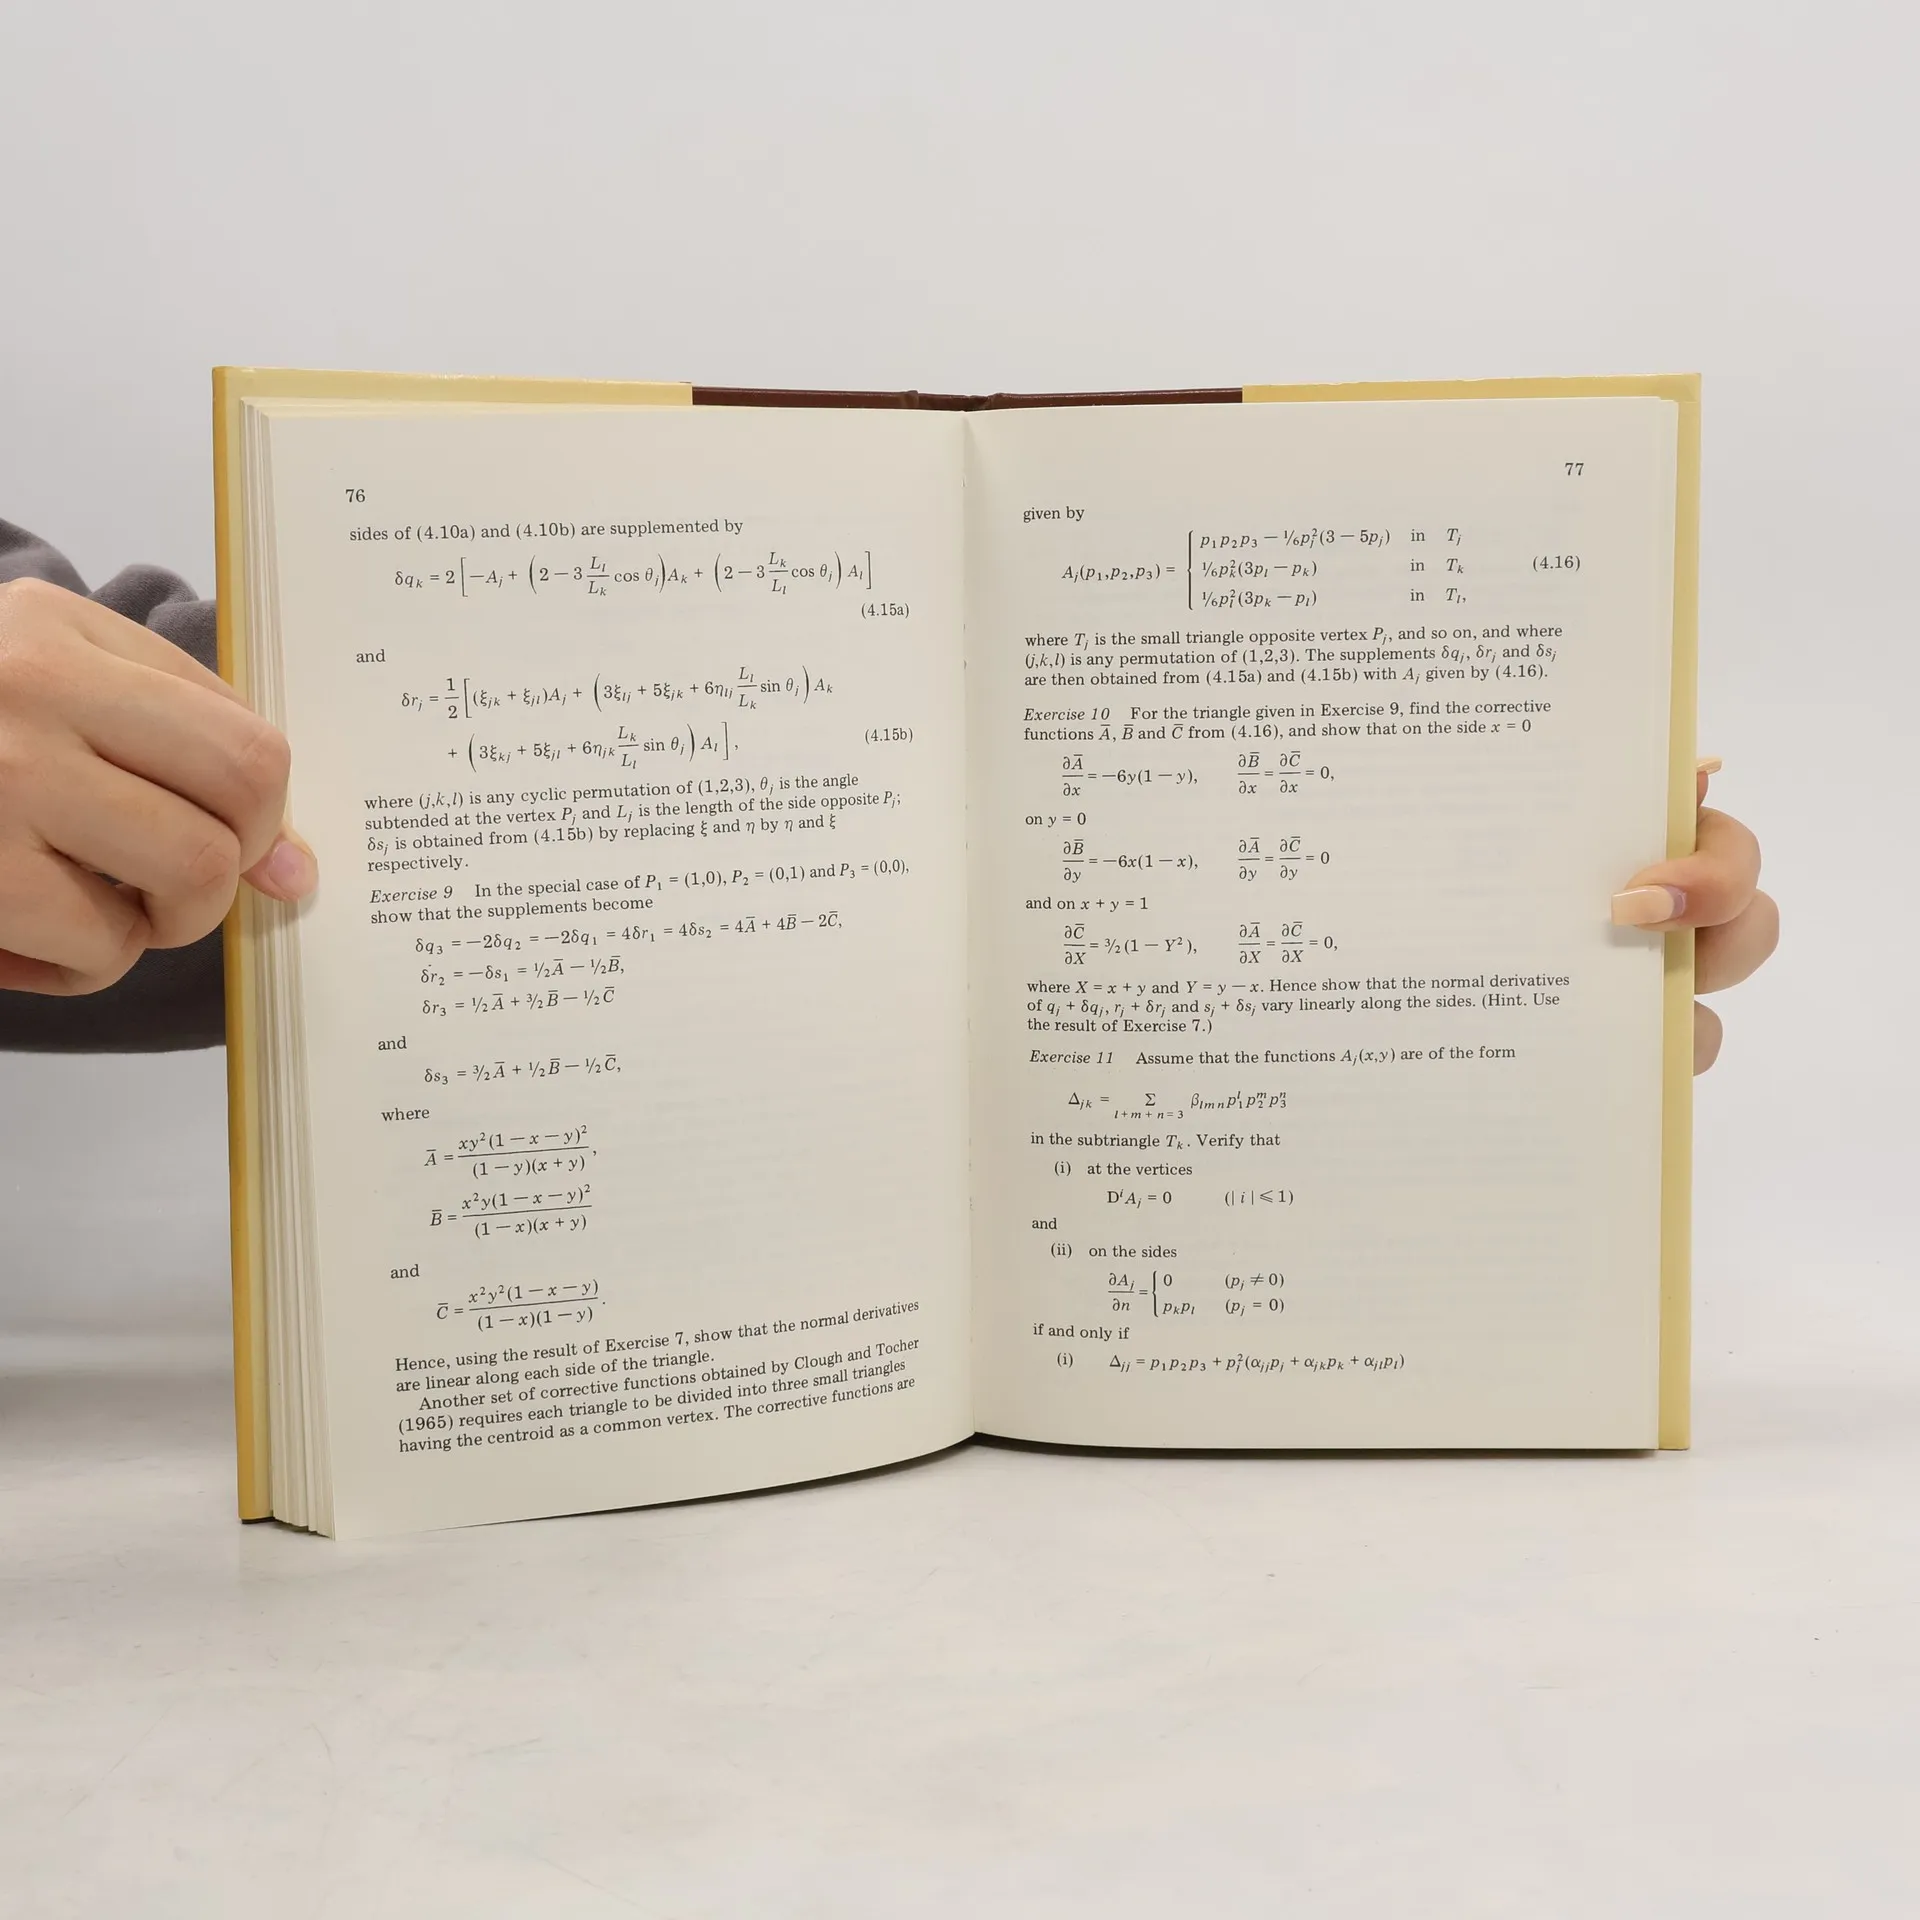 76
sides of (4.10a) and (4.10b) are supplemented by
δqₖ = 2 [ −Aⱼ + ( 2 − 3 Lₗ/Lₖ cos θⱼ ) Aₖ + ( 2 − 3 Lₖ/Lₗ cos θⱼ ) Aₗ ]
(4.15a)
and
δrⱼ = 1/2 [ (ξⱼₖ + ξⱼₗ)Aⱼ + ( 3ξₗⱼ + 5ξⱼₖ + 6ηₗⱼ Lₗ/Lₖ sin θⱼ ) Aₖ
+ ( 3ξₖⱼ + 5ξⱼₗ + 6ηⱼₖ Lₖ/Lₗ sin θⱼ ) Aₗ ], (4.15b)
where (j,k,l) is any cyclic permutation of (1,2,3), θⱼ is the angle
subtended at the vertex Pⱼ and Lⱼ is the length of the side opposite Pⱼ;
δsⱼ is obtained from (4.15b) by replacing ξ and η by η and ξ
respectively.
Exercise 9 In the special case of P₁ = (1,0), P₂ = (0,1) and P₃ = (0,0),
show that the supplements become
δq₃ = −2δq₂ = −2δq₁ = 4δr₁ = 4δs₂ = 4A̅ + 4B̅ − 2C̅,
δr₂ = −δs₁ = ½A̅ − ½B̅,
δr₃ = ½A̅ + 3/2B̅ − ½C̅
and
δs₃ = 3/2A̅ + ½B̅ − ½C̅,
where
A̅ = xy²(1 − x − y)² / (1 − y)(x + y),
B̅ = x²y(1 − x − y)² / (1 − x)(x + y)
and
C̅ = x²y²(1 − x − y) / (1 − x)(1 − y).
Hence, using the result of Exercise 7, show that the normal derivatives
are linear along each side of the triangle.
Another set of corrective functions obtained by Clough and Tocher
(1965) requires each triangle to be divided into three small triangles
having the centroid as a common vertex. The corrective functions are
77
given by
Aⱼ(p₁,p₂,p₃) = { p₁p₂p₃ − ⅙pⱼ²(3 − 5pⱼ) in Tⱼ
⅙pₖ²(3pₗ − pₖ) in Tₖ (4.16)
⅙pₗ²(3pₖ − pₗ) in Tₗ,
where Tⱼ is the small triangle opposite vertex Pⱼ, and so on, and where
(j,k,l) is any permutation of (1,2,3). The supplements δqⱼ, δrⱼ and δsⱼ
are then obtained from (4.15a) and (4.15b) with Aⱼ given by (4.16).
Exercise 10 For the triangle given in Exercise 9, find the corrective
functions A̅, B̅ and C̅ from (4.16), and show that on the side x = 0
∂A̅/∂x = −6y(1 − y), ∂B̅/∂x = ∂C̅/∂x = 0,
on y = 0
∂B̅/∂y = −6x(1 − x), ∂A̅/∂y = ∂C̅/∂y = 0
and on x + y = 1
∂C̅/∂X = 3/2 (1 − Y²), ∂A̅/∂X = ∂C̅/∂X = 0,
where X = x + y and Y = y − x. Hence show that the normal derivatives
of qⱼ + δqⱼ, rⱼ + δrⱼ and sⱼ + δsⱼ vary linearly along the sides. (Hint. Use
the result of Exercise 7.)
Exercise 11 Assume that the functions Aⱼ(x,y) are of the form
Δⱼₖ = Σ βₗₘₙ p₁ˡ p₂ᵐ p₃ⁿ
l + m + n = 3
in the subtriangle Tₖ. Verify that
(i) at the vertices
DⁱAⱼ = 0 (| i | ⩽ 1)
and
(ii) on the sides
∂Aⱼ/∂n = { 0 (pⱼ ≠ 0)
pₖpₗ (pⱼ = 0)
if and only if
(i) Δⱼⱼ = p₁p₂p₃ + pⱼ²(αⱼⱼpⱼ + αⱼₖpₖ + αⱼₗpₗ)